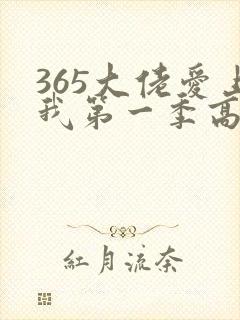 365大佬爱
我第一季高
红月流奈